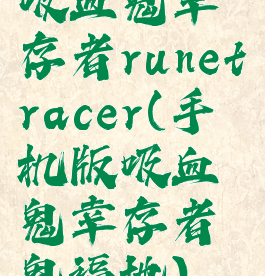 吸血鬼幸
存者runet
racer(手
机版吸血
鬼幸存者
鬼福地)